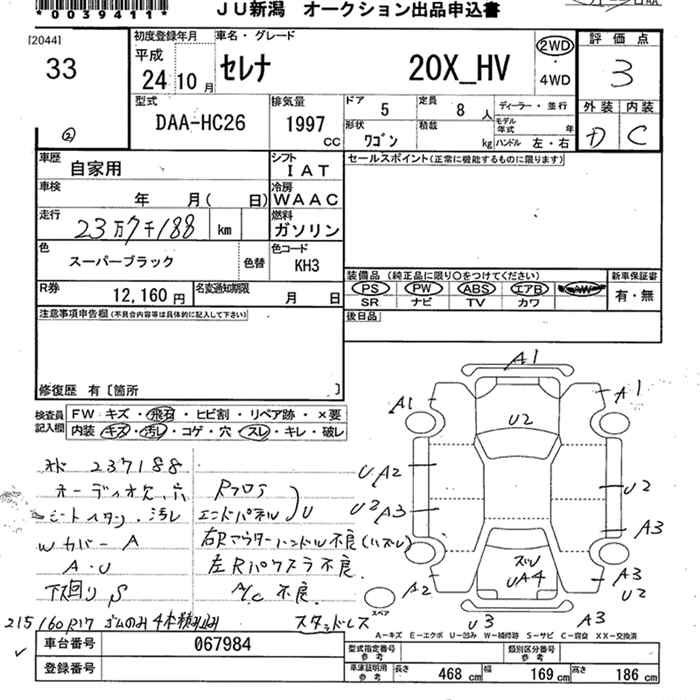 *0039411*
JU新潟 オークション出品申込書
[2044]
33
②
初度登録年月
平成
24 10 月
車名・グレード
セレナ 20X_HV
2WD
・
4WD
評価点
3
型式
DAA-HC26
排気量
1997 CC
ドア 5
定員 8 人
形状 ワゴン
積載 kg
ディーラー・並行
モデル年式 年
ハンドル 左・右
外装 内装
D C
車歴 自家用
シフト IAT
セールスポイント(正常に機能するものに限ります)
車検 年 月( 日)
冷房 WAAC
走行 23万7千188 km
燃料 ガソリン
色 スーパーブラック 色替
色コード KH3
装備品 (純正品に限り○をつけてください)
新車保証書
PS PW ABS エアB AW
SR ナビ TV カワ
有・無
R券 12,160 円
名変通知期限 月 日
後日品
注意事項申告欄(不具合内容等は具体的に記入して下さい)
修復歴 有〔箇所 〕
検査員記入欄
FW キズ・飛石・ヒビ割・リペア跡・×要
内装 キズ・汚レ・コゲ・穴・スレ・キレ・破レ
237188
オーディオ欠、穴
シートイタミ、汚レ
Wカバー A
A・U
下回り S
Rフロア
エンドパネル U
右Rアウターハンドル不良(ハズレ)
左Rパワスラ不良
A/C 不良
215/60R17 ゴムのみ4本積込み
スタッドレス
A1
A1 A1
U2
UA2
U2 A3
U2
A3
スリ
UA4
A2
A3
U2
U3 A3
スペア
A-キズ E-エクボ U-凹み W-補修跡 S-サビ C-腐食 XX-交換済
車台番号 067984
登録番号
型式指定番号 参考
類別区分番号 参考
車庫証明用 参考 長さ 468 cm 幅 169 cm 高さ 186 cm